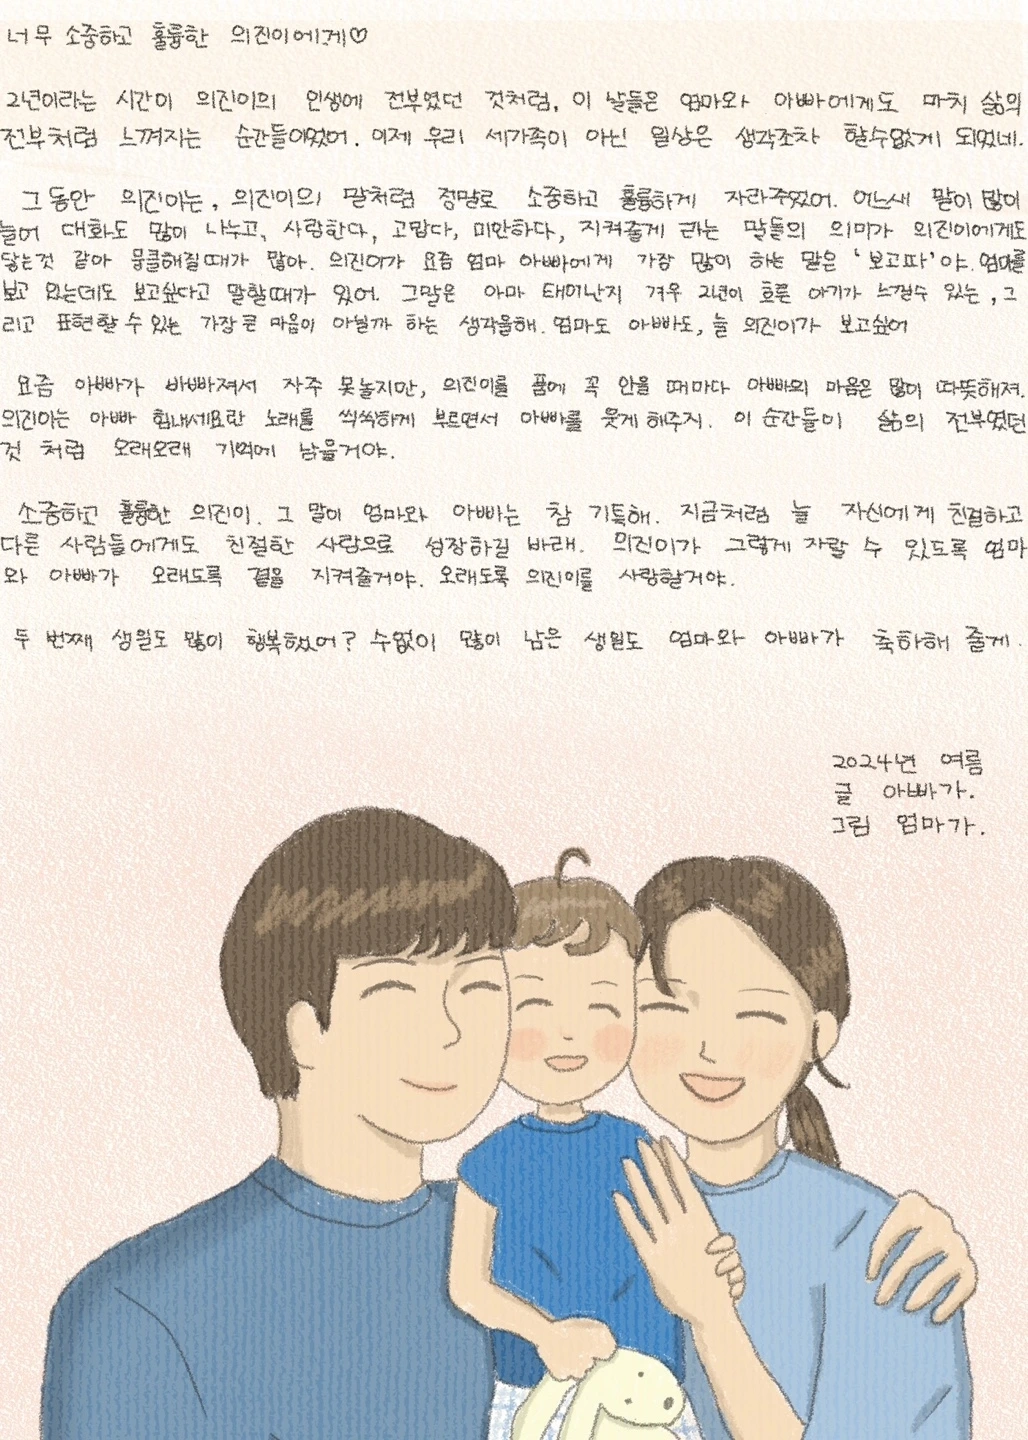 너무 소중하고 훌륭한 의진이에게♡
2년이라는 시간이 의진이의 인생에 전부였던 것처럼, 이 날들은 엄마와 아빠에게도 마치 삶의
전부처럼 느껴지는 순간들이었어. 이제 우리 세가족이 아닌 일상은 생각조차 할수없게 되었네.
그동안 의진이는, 의진이의 말처럼 정말로 소중하고 훌륭하게 자라주었어. 어느새 말이 많이
늘어 대화도 많이 나누고, 사랑한다, 고맙다, 미안하다, 지켜줄게 라는 말들의 의미가 의진이에게도
닿는것 같아 뭉클해질때가 많아. 의진이가 요즘 엄마 아빠에게 가장 많이 하는 말은 '보고파'야. 엄마를
보고 있는데도 보고싶다고 말할때가 있어. 그말은 아마 태어난지 겨우 2년이 흐른 아기가 느낄수 있는, 그
리고 표현할 수 있는 가장 큰 마음이 아닐까 하는 생각을해. 엄마도 아빠도, 늘 의진이가 보고싶어
요즘 아빠가 바빠져서 자주 못놀지만, 의진이를 품에 꼭 안을 때마다 아빠의 마음은 많이 따뜻해져.
의진이는 아빠 힘내세요란 노래를 씩씩하게 부르면서 아빠를 웃게 해주지. 이 순간들이 삶의 전부였던
것 처럼 오래오래 기억에 남을거야.
소중하고 훌륭한 의진이. 그 말이 엄마와 아빠는 참 기특해. 지금처럼 늘 자신에게 친절하고
다른 사람들에게도 친절한 사람으로 성장하길 바래. 의진이가 그렇게 자랄 수 있도록 엄마
와 아빠가 오래도록 곁을 지켜줄거야. 오래도록 의진이를 사랑할거야.
두 번째 생일도 많이 행복했어? 수없이 많이 남은 생일도 엄마와 아빠가 축하해 줄게.
2024년 여름
글 아빠가.
그림 엄마가.